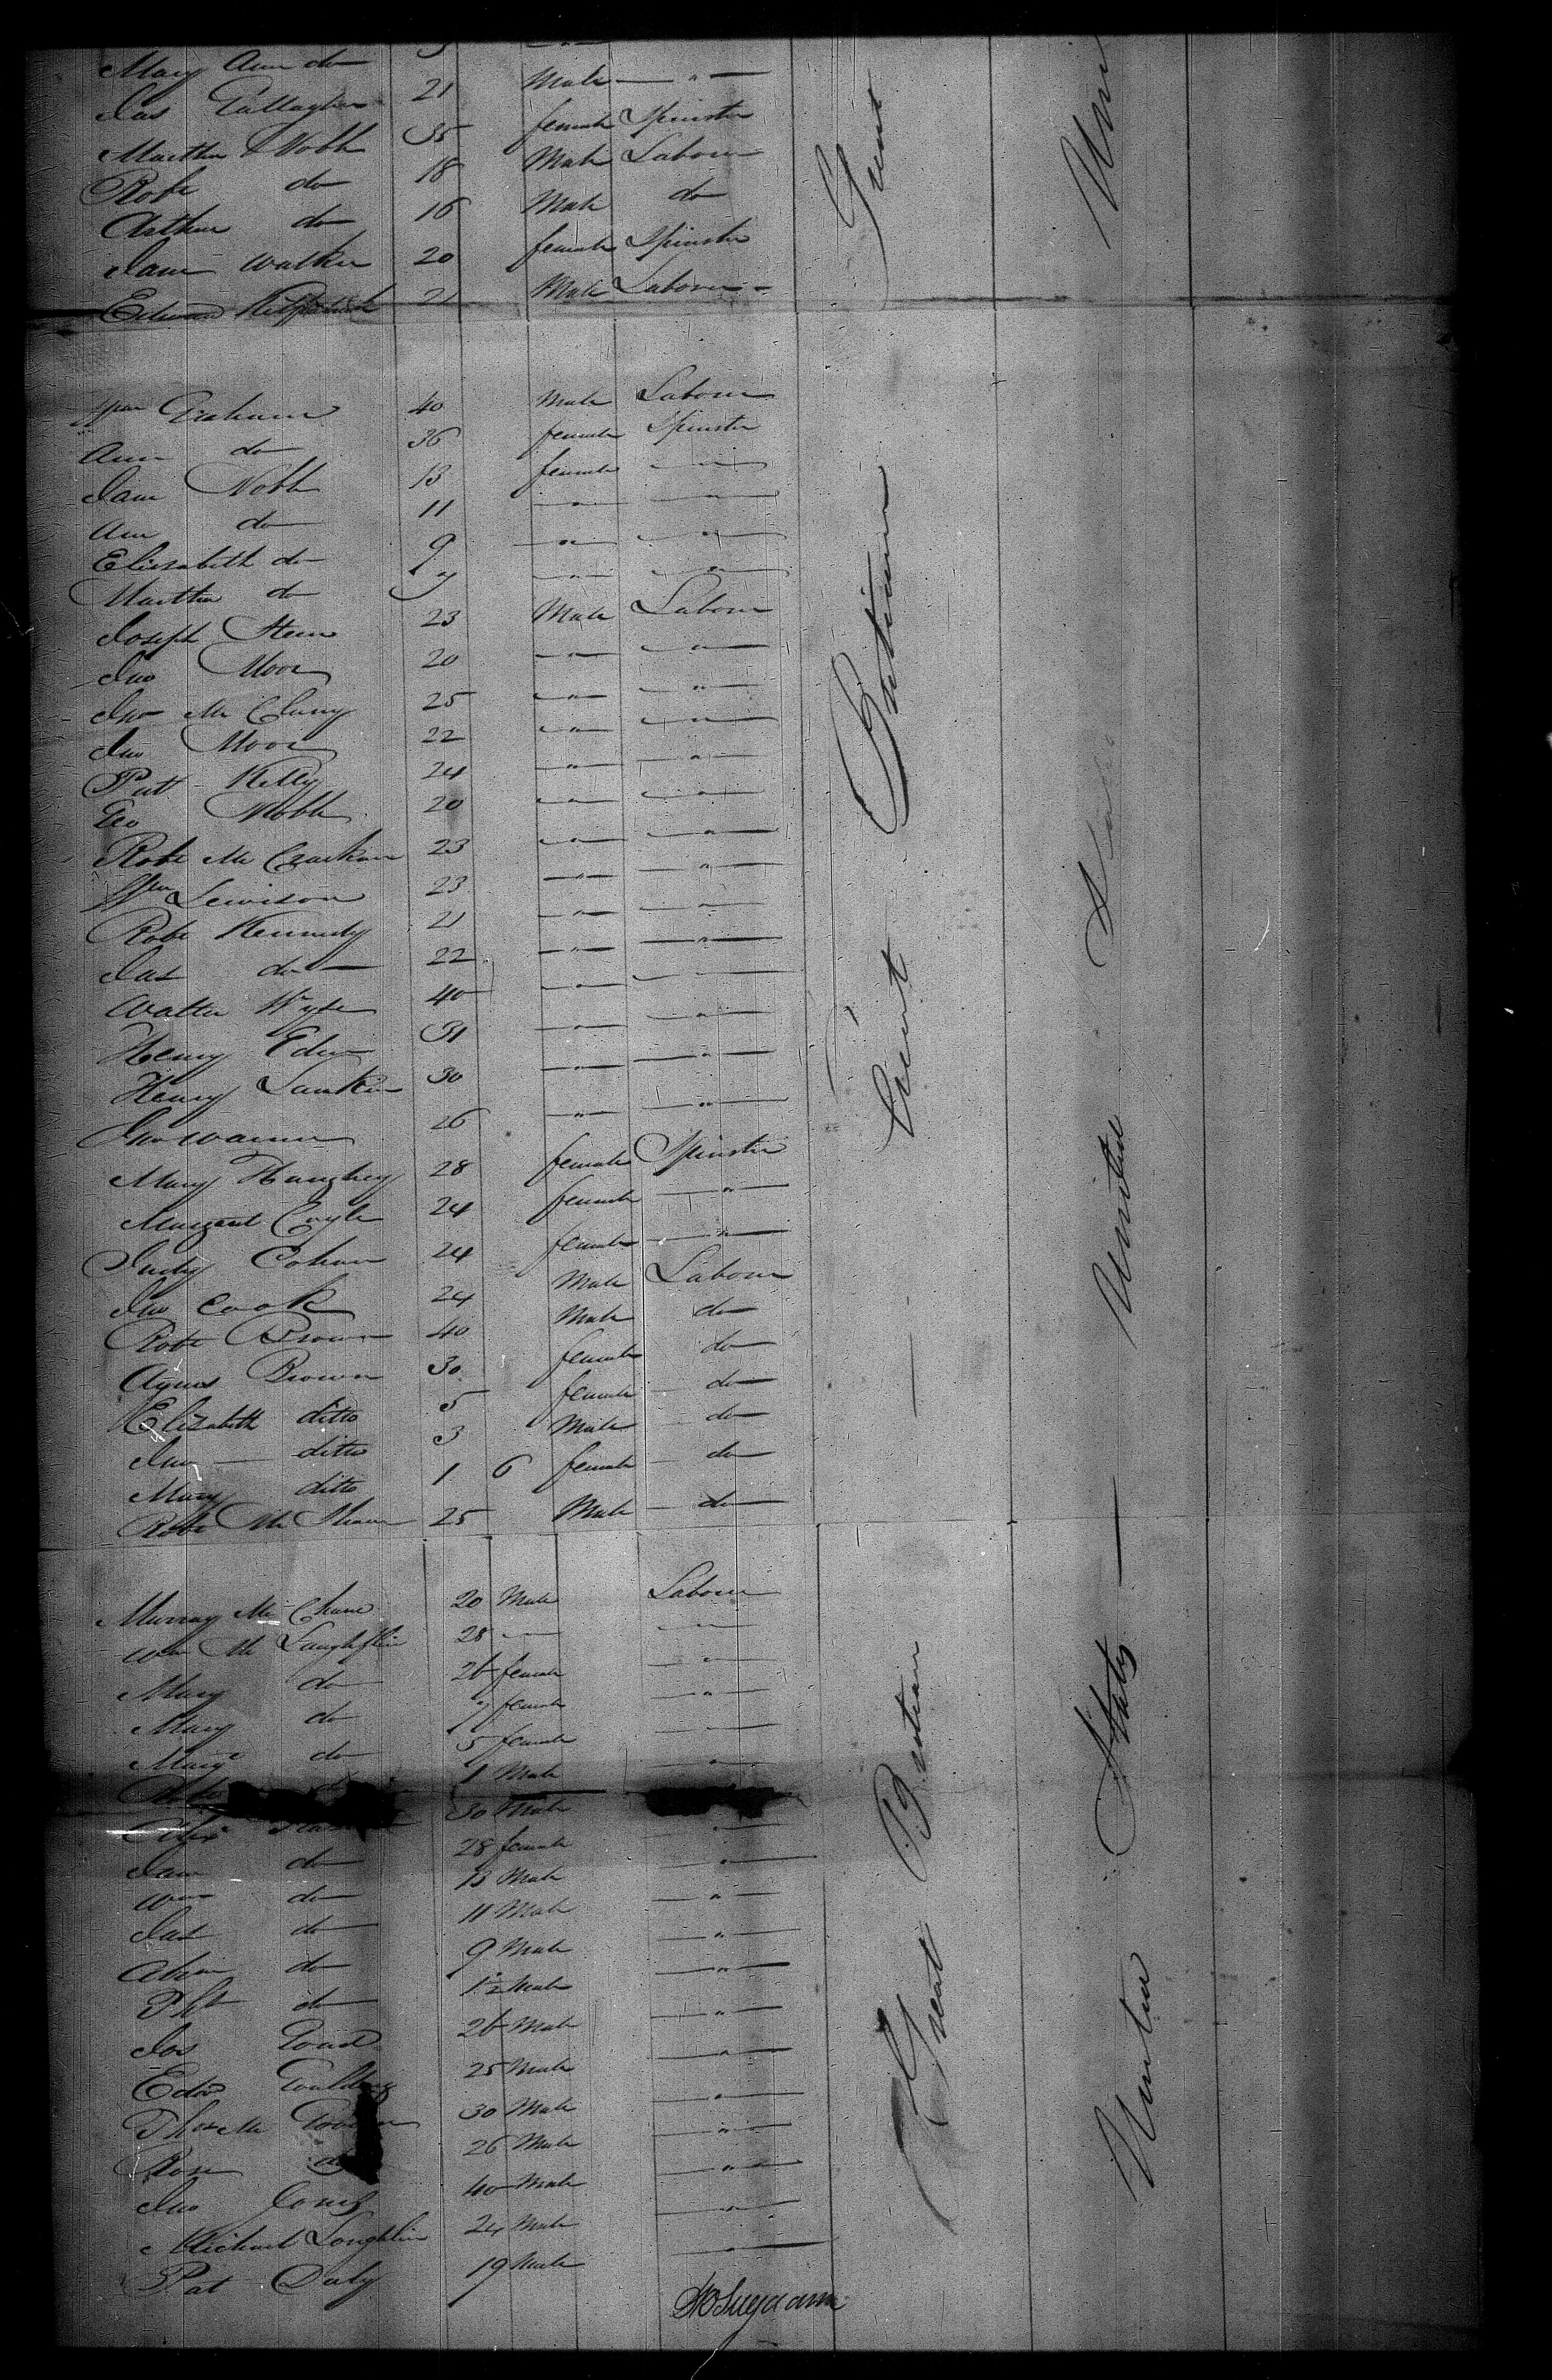 Mary Ann do
Jas Gallagher 21 Male "
Martha Nobb 35 female Spinster
Robt do 18 Male Labour
Arthur do 16 Male do
Jane Walker 20 female Spinster
Edward Kilpatrick 21 Male Labour
Wm Graham 40 Male Labour
Ann do 36 female Spinster
Jane Nobb 13 female "
Ann do 11 " "
Elizabeth do 9 " "
Martha do 7 " "
Joseph Steen 23 Male Labour
Jno Moor 20 " "
Jno Mc Clury 25 " "
Jno Moor 22 " "
Pat Kelly 24 " "
Geo Nobb 20 " "
Robt Mc Crackin 23 " "
Wm Lewison 23 " "
Robt Kennedy 21 " "
Jas do 22 " "
Walter Wyse 40 " "
Henry 31 " "
Henry Lamkin 30 " "
Jno Warner 26 " "
Mary Haughey 28 female Spinster
Margaret Coyle 24 female "
Judy Cohan 24 female "
Jno Cook 24 Male Labour
Robt Brown 40 Male do
Agnes Brown 30 female do
Elizabeth ditto 5 female do
Jno ditto 3 Male do
Mary ditto 1 6 female do
Robt Mc Shane 25 Male do
Murray Mc Shane 20 Male Labour
Wm Mc Laughflin 28 "
Mary do 26 female "
Mary do 7 female "
Mary do 5 female "
1 Male "
Alex 30 Male
Jane do 28 female "
Wm do 13 Male "
Jas do 11 Male "
Adam do 9 Male "
do 1½ Male "
Jos 26 Male "
Edwd Goulding 25 Male "
Thos Mc 30 Male "
Rose do 26 Male "
Jno Jones 40 Male "
Michael Loughlin 24 Male "
Pat Daly 19 Male "
Great Britian
Great Britian
Great
United States
United States